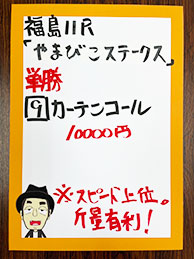 福島11R
「やまびこステークス」
単勝
9カーテンコール
10000円
※スピード上位。
斤量有利！